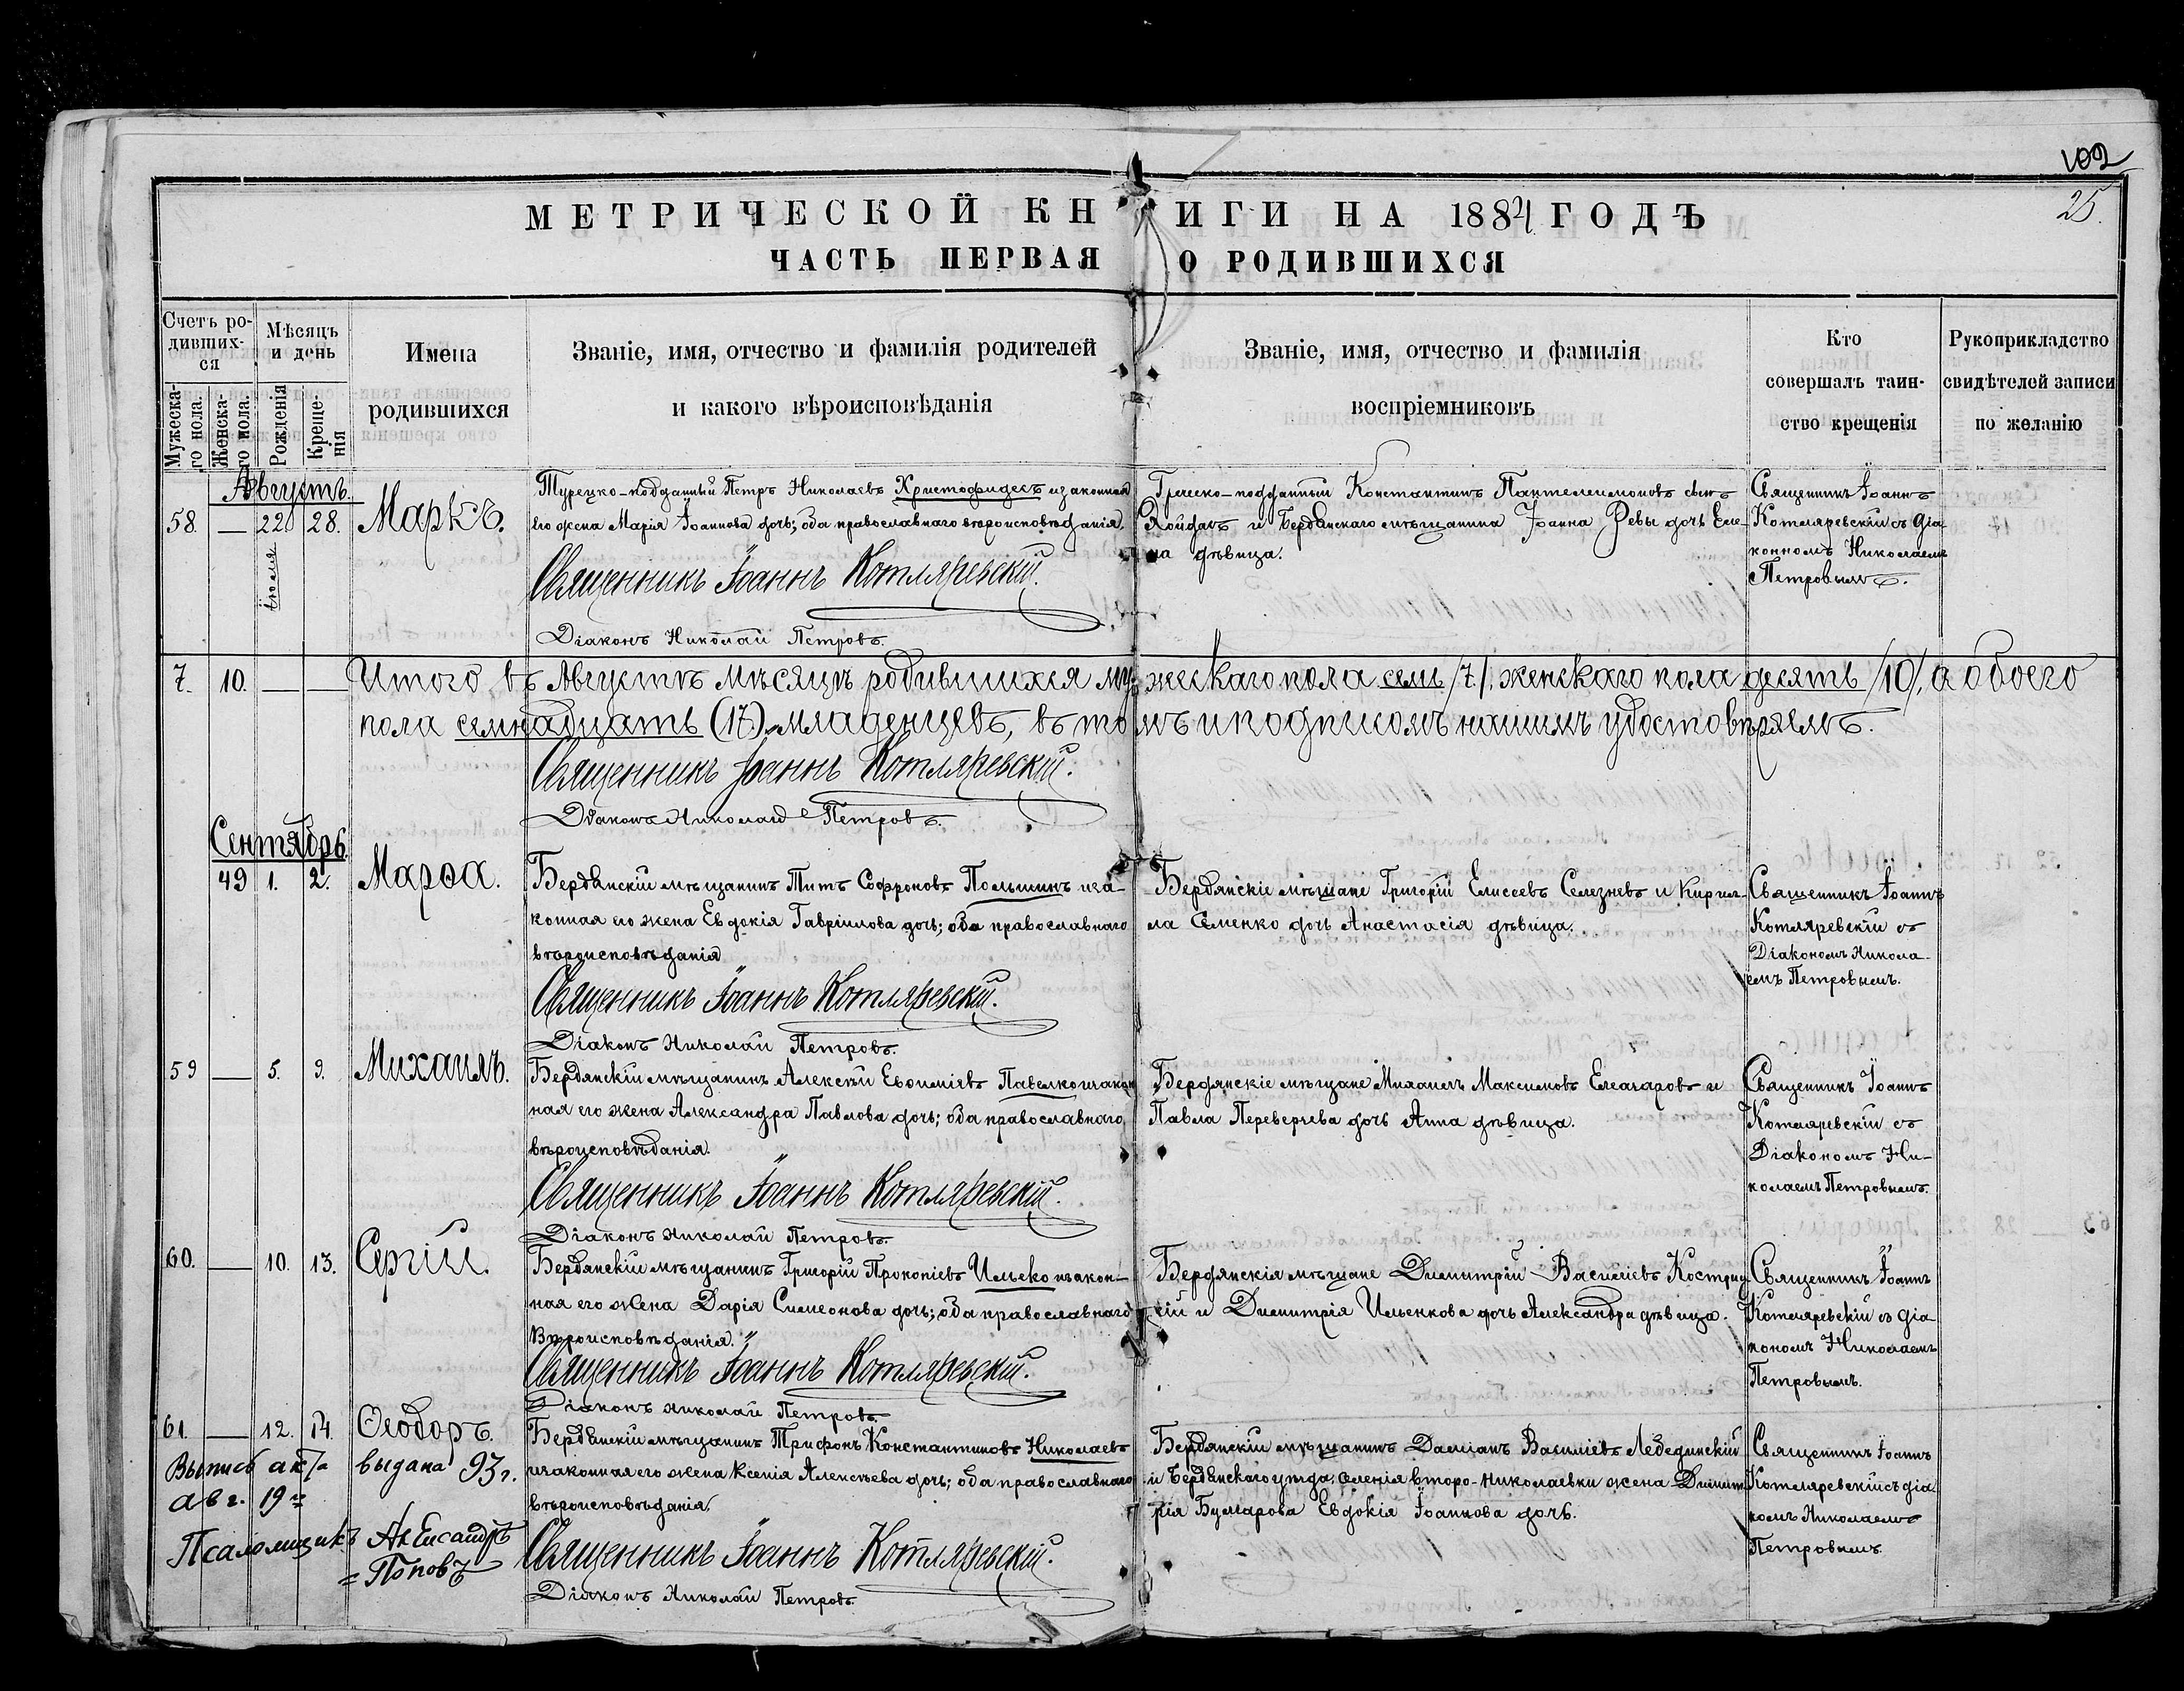 102
25.
МЕТРИЧЕСКОЙ КНИГИ НА 1884 ГОДЪ
ЧАСТЬ ПЕРВАЯ О РОДИВШИХСЯ
Счетъ родившихся
Мужескаго пола.
Женскаго пола.
Мѣсяцъ и день
Рожденія
Крещенія
Имена родившихся
Званіе, имя, отчество и фамилія родителей
и какого вѣроисповѣданія
Званіе, имя, отчество и фамилія
воспріемниковъ
Кто
совершалъ таин-
ство крещенія
Рукоприкладство
свидѣтелей записи
по желанію
Августъ.
58. — 22 28. Маркъ.
іюля
Турецко-подданный Петръ Николаевъ Христофидесъ и законная
его жена Марія Іоаннова дочь; оба православнаго вѣроисповѣданія.
Священникъ Іоаннъ Котляревскій.
Діаконъ Николай Петровъ.
Греческо-подданный Константинъ Пантелеимоновъ сынъ
и Бердянскаго мѣщанина Іоанна Ревы дочь Еле-
на дѣвица.
Священникъ Іоаннъ
Котляревскій съ діа
кономъ Николаемъ
Петровымъ.
7. 10. — — Итого въ Августѣ мѣсяцѣ родившихся мужескаго пола семь /7/. женскаго пола десять /10/, а обоего
пола семнадцать (17.) младенцевъ, въ томъ и подписомъ нашимъ удостовѣряемъ.
Священникъ Іоаннъ Котляревскій.
Діаконъ Николай Петровъ.
Сентябрь.
49 1. 2. Марѳа.
Бердянскій мѣщанинъ Титъ Софроновъ Польшинъ и за-
конная его жена Евдокія Гавріилова дочь; оба православнаго
вѣроисповѣданія
Священникъ Іоаннъ Котляревскій.
Діаконъ Николай Петровъ.
Бердянскіе мѣщане Григорій Елисеевъ Селезневъ и Кирил-
ла Семенко дочь Анастасія дѣвица.
Священникъ Іоаннъ
Котляревскій съ
Діакономъ Никола-
емъ Петровымъ.
59 — 5. 9. Михаилъ.
Бердянскій мѣщанинъ Алексѣй Евѳиміевъ Павелко и закон
ная его жена Александра Павлова дочь; оба православнаго
вѣроисповѣданія.
Священникъ Іоаннъ Котляревскій.
Діаконъ Николай Петровъ.
Бердянскіе мѣщане Михаилъ Максимовъ Елеазаровъ и
Павла Переверчева дочь Анна дѣвица.
Священникъ Іоаннъ
Котляревскій съ
Діакономъ Ни-
колаемъ Петровымъ.
60. — 10. 13. Сергій.
Бердянскій мѣщанинъ Григорій Прокопіевъ Ильеко и закон-
ная его жена Дарія Симеонова дочь; оба православнаго
Вѣроисповѣданія.
Священникъ Іоаннъ Котляревскій.
Діаконъ Николай Петровъ.
Бердянскія мѣщане Димитрій Василіевъ Кострицкій и Димитрія Ильенкова дочь Александра дѣвица.
Священникъ Іоаннъ
Котляревскій съ діа
кономъ Николаемъ
Петровымъ.
61. — 12. 14. Ѳеодоръ.
Бердянскій мѣщанинъ Трифонъ Константиновъ Николаевъ
и законная его жена Ксенія Алексѣева дочь; оба православнаго
вѣроисповѣданія.
Священникъ Іоаннъ Котляревскій.
Діаконъ Николай Петровъ
Бердянскій мѣщанинъ Даміанъ Василіевъ Лебединскій
и Бердянскаго уѣзда, селенія второ-Николаевки жена Димит
рія Бумарова Евдокія Іоаннова дочь.
Священникъ Іоаннъ
Котляревскій съ діа
комъ Николаемъ
Петровымъ.
Выпись акта выдана 93 г.
авг. 19
Псаломщикъ Александръ
Поповъ